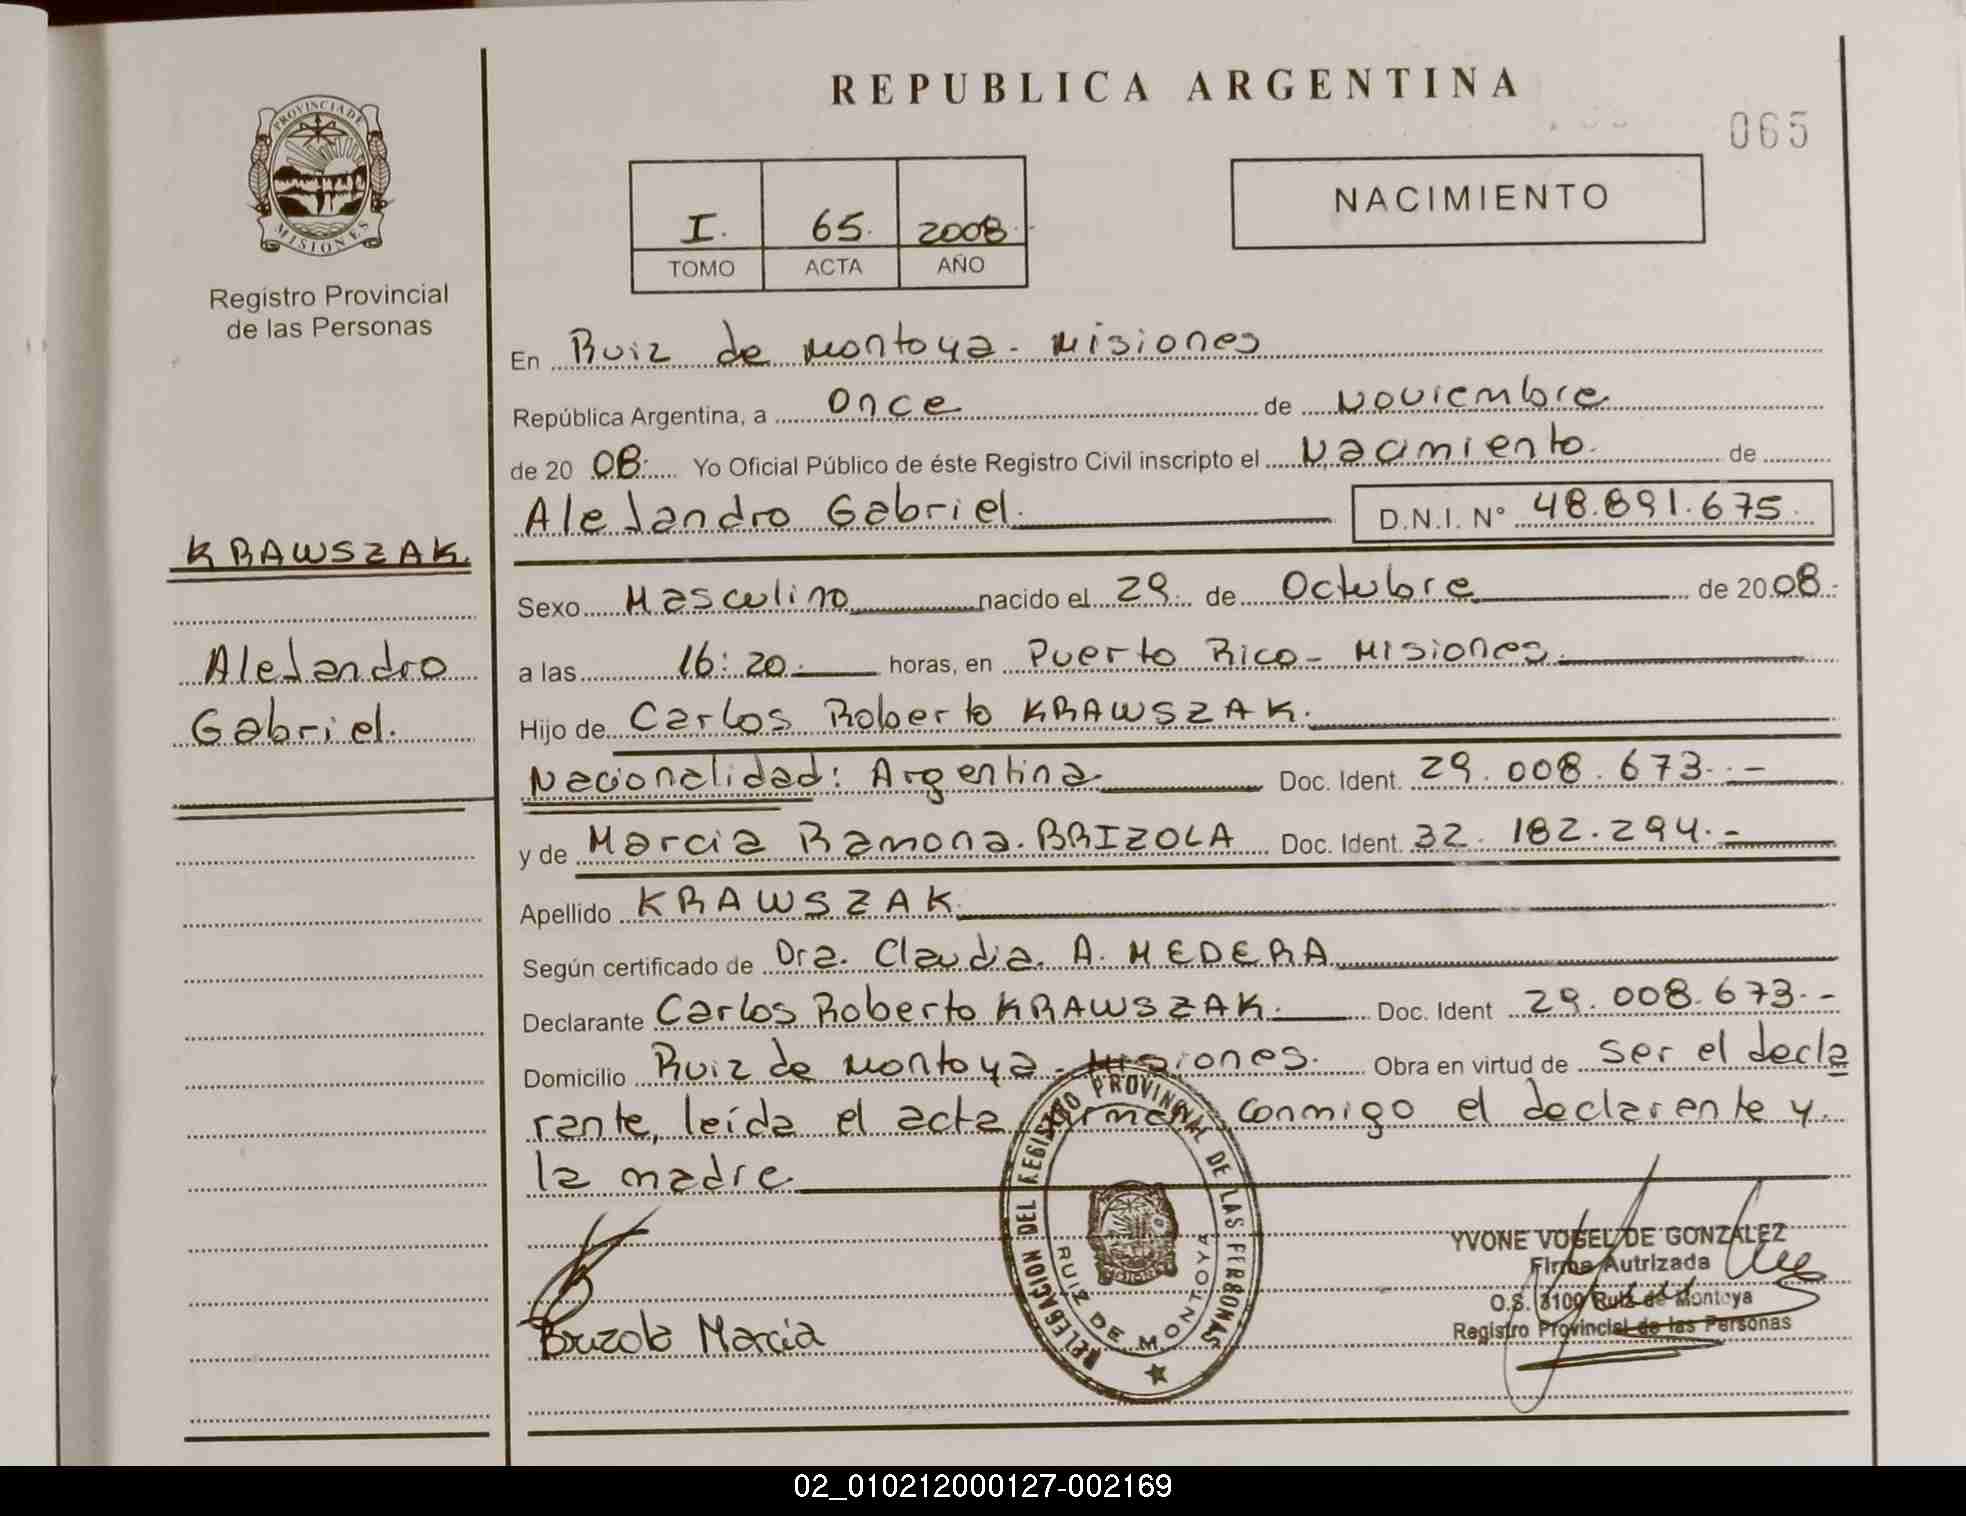 REPUBLICA ARGENTINA
065
PROVINCIA DE
MISIONES
Registro Provincial
de las Personas
I. 65. 2008.
TOMO ACTA AÑO
NACIMIENTO
En Ruiz de Montoya - Misiones
República Argentina, a Once de Noviembre
de 20 08. Yo Oficial Público de éste Registro Civil inscripto el Nacimiento. de
Alejandro Gabriel. D.N.I. N° 48.891.675.
KRAWSZAK.
Alejandro
Gabriel.
Sexo Masculino nacido el 29 de Octubre de 2008.-
a las 16:20. horas, en Puerto Rico - Misiones.
Hijo de Carlos Roberto KRAWSZAK.
Nacionalidad: Argentina. Doc. Ident. 29.008.673.-
y de Marcia Ramona. BRIZOLA Doc. Ident. 32.182.294.-
Apellido KRAWSZAK
Según certificado de Dra. Claudia. A. MEDERA
Declarante Carlos Roberto KRAWSZAK. Doc. Ident 29.008.673.-
Domicilio Ruiz de Montoya - Misiones. Obra en virtud de ser el decla
rante, leída el acta firman conmigo el declarente y
la madre
Brizola Marcia
DELEGACION DEL REGISTRO PROVINCIAL DE LAS PERSONAS
RUIZ DE MONTOYA
YVONE VOGEL DE GONZALEZ
Firma Autrizada
O.S. 3100 Ruiz de Montoya
Registro Provincial de las Personas
02_010212000127-002169